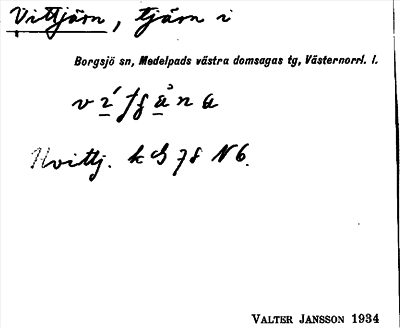 Vittjärn, tjärn i
Borgsjö sn, Medelpads västra domsagas tg, Västernorrl. l.
Hvittj. k
N 6.
VALTER JANSSON 1934